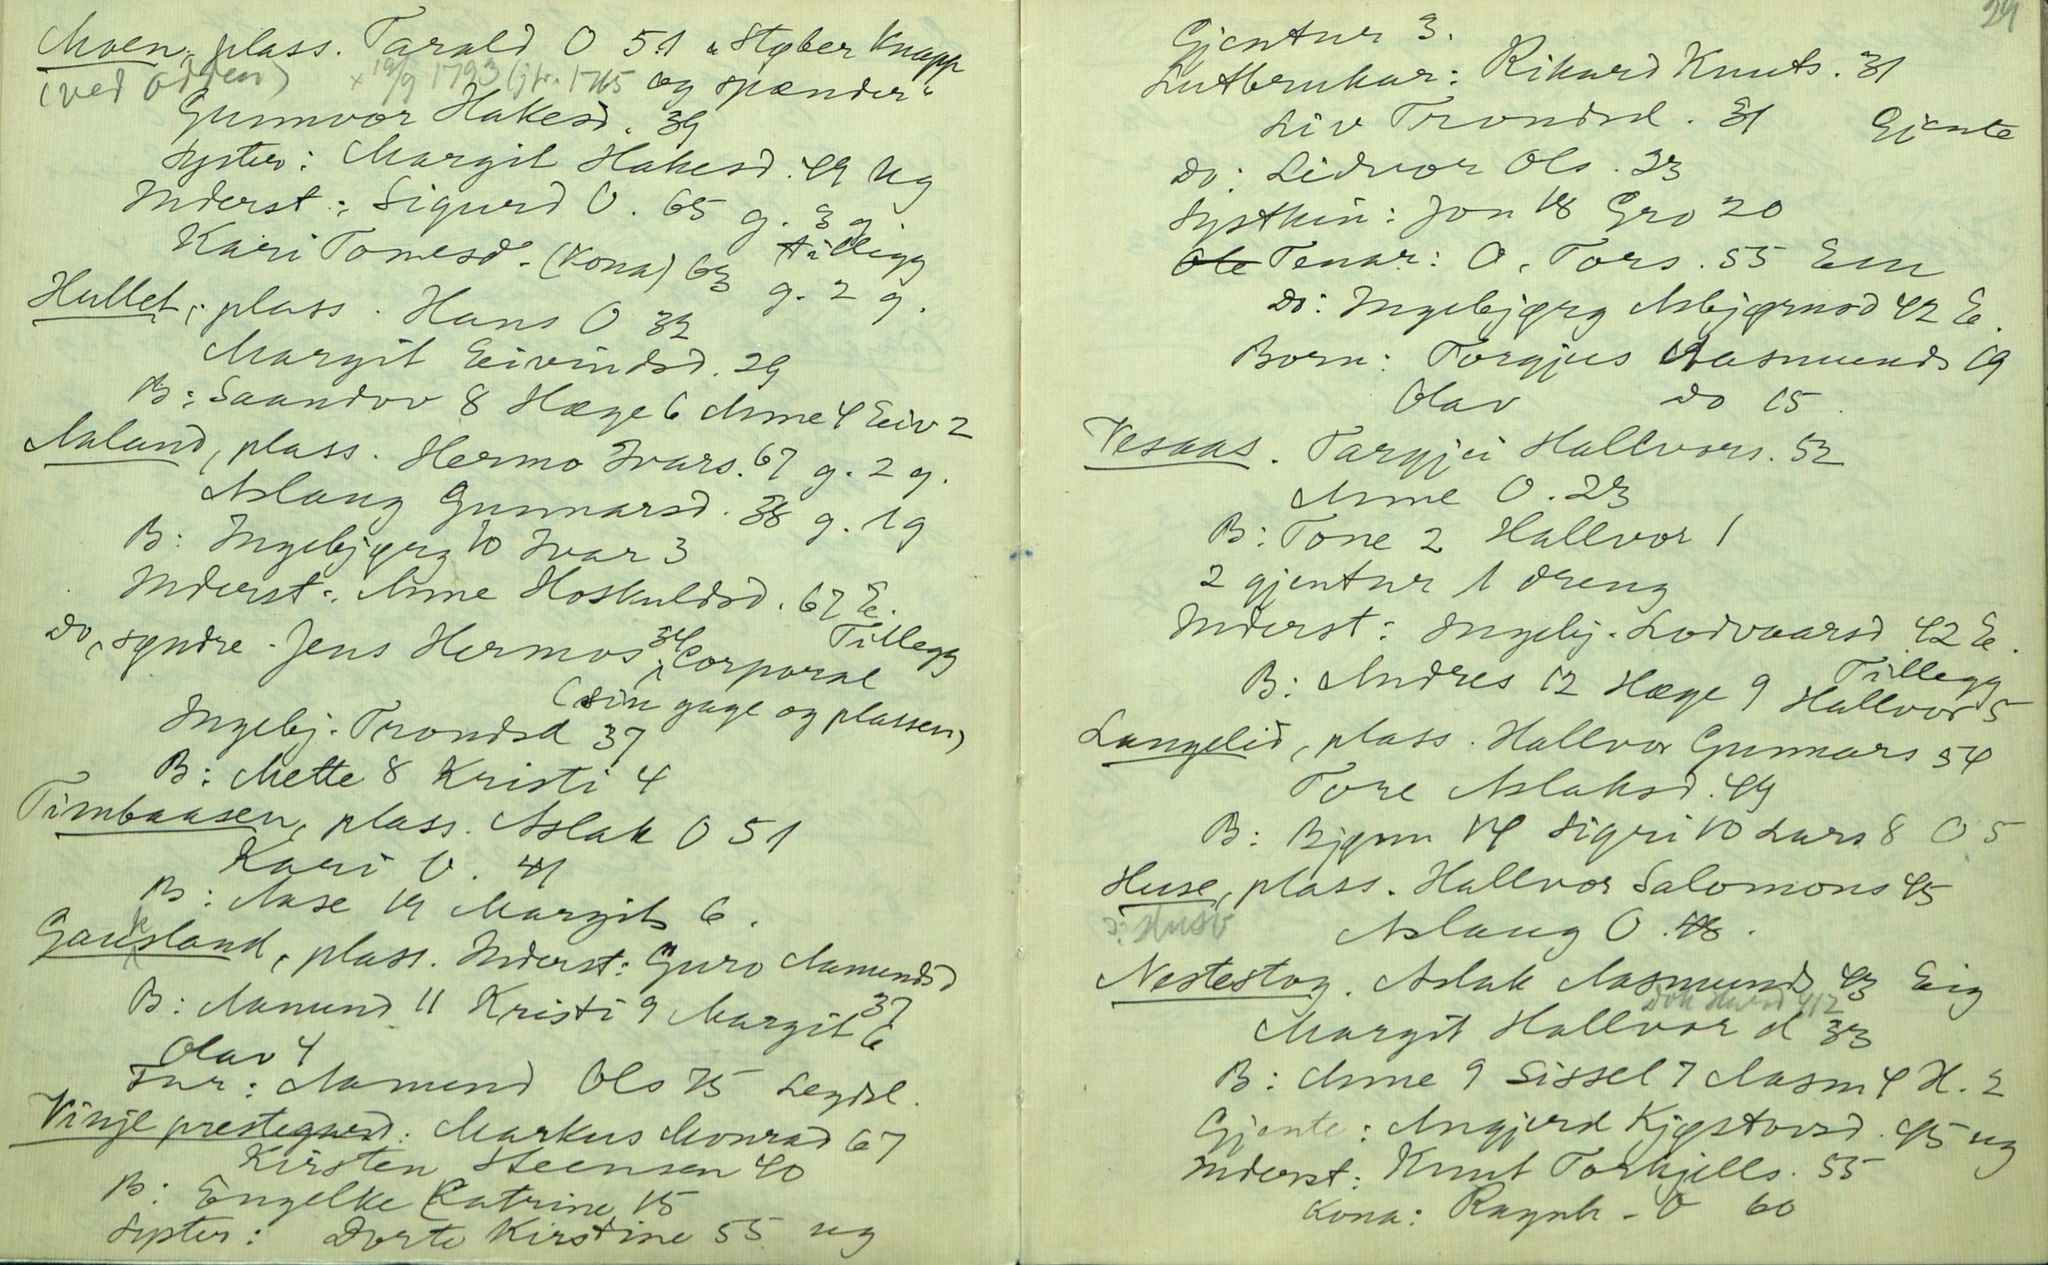 Moen, plass. Tarald O 51 "Støber Knapp
(ved Odden) x 19/9 1793 (jfr. 1765 og spænder"
Gunnvor Hakesd. 39
Syster: Margit Hakesd. 49 ug
Inderst: Sigurd O. 65 g. 3 g
Kari Tonesd. (Kona) 63 g. 2 g. tillegg
Hullet, plass. Hans O 32
Margit Eivindsd. 29
B: Saandov 8 Hæge 6 Anne 4 Eiv 2
Aaland, plass. Hermo Ivars. 67 g. 2 g.
Aslaug Gunnarsd. 38 g. 1 g
B: Ingebjørg 10 Ivar 3
Inderst: Anne Hoskuldsd. 67 E. Tillegg
Do, syndre. Jens Hermos 34 Corporal
(sin gage og plassen)
Ingebj. Trondsd 37
B: Mette 8 Kristi 4
Timbaasen, plass. Aslak O 51
Kari O. 41
B: Aase 19 Margit 6.
Gausland, plass. Inderst: Guro Aamundsd 37
B: Aamund 11 Kristi 9 Margit 6
Olav 4
Fur: Aamund Ols 75 Legdsl.
Vinje prestegaard. Markus Monrad 67
Kirsten Steensen 40
B: Engelke Catrine 15
Syster: Dorte Kirstine 55 ug
24
Gjentur 3.
Lutbrukar: Rikard Knuts. 31
Liv Trondsd. 31 Gjente
Do: Lidvor Ols. 23
Systkin: Jon 18 Gro 20
Ole Tenar: O. Tors. 55 Em
Do: Ingebjørg Asbjørnsd 42 E.
Born: Torgjus Aasmunds 19
Olav do 15.
Vesaas. Targjei Hallvors. 52
Anne O. 23
B: Tone 2 Hallvor 1
2 gjentur 1 dreng
Inderst: Ingebj. Lodvaarsd 42 E. Tillegg
B: Andres 12 Hæge 9 Hallvor 5
Langelid, plass. Hallvor Gunnars 54
Tore Aslaksd. 49
B: Bjørn 14 Sigri 10 Lars 8 O 5
Huse, plass. Hallvor Salomons 45
ɔ: Husv Aslaug O. 48.
Nestestog. Aslak Aasmunds 43 Eig
Margit Hallvor d 33
B: Anne 9 Sissel 7 Aasm 4 H. 2
Gjente: Angjerd Kjøstovsd. 45 ug
Inderst: Knut Torkjells. 55
Kona: Ragnh. O 60